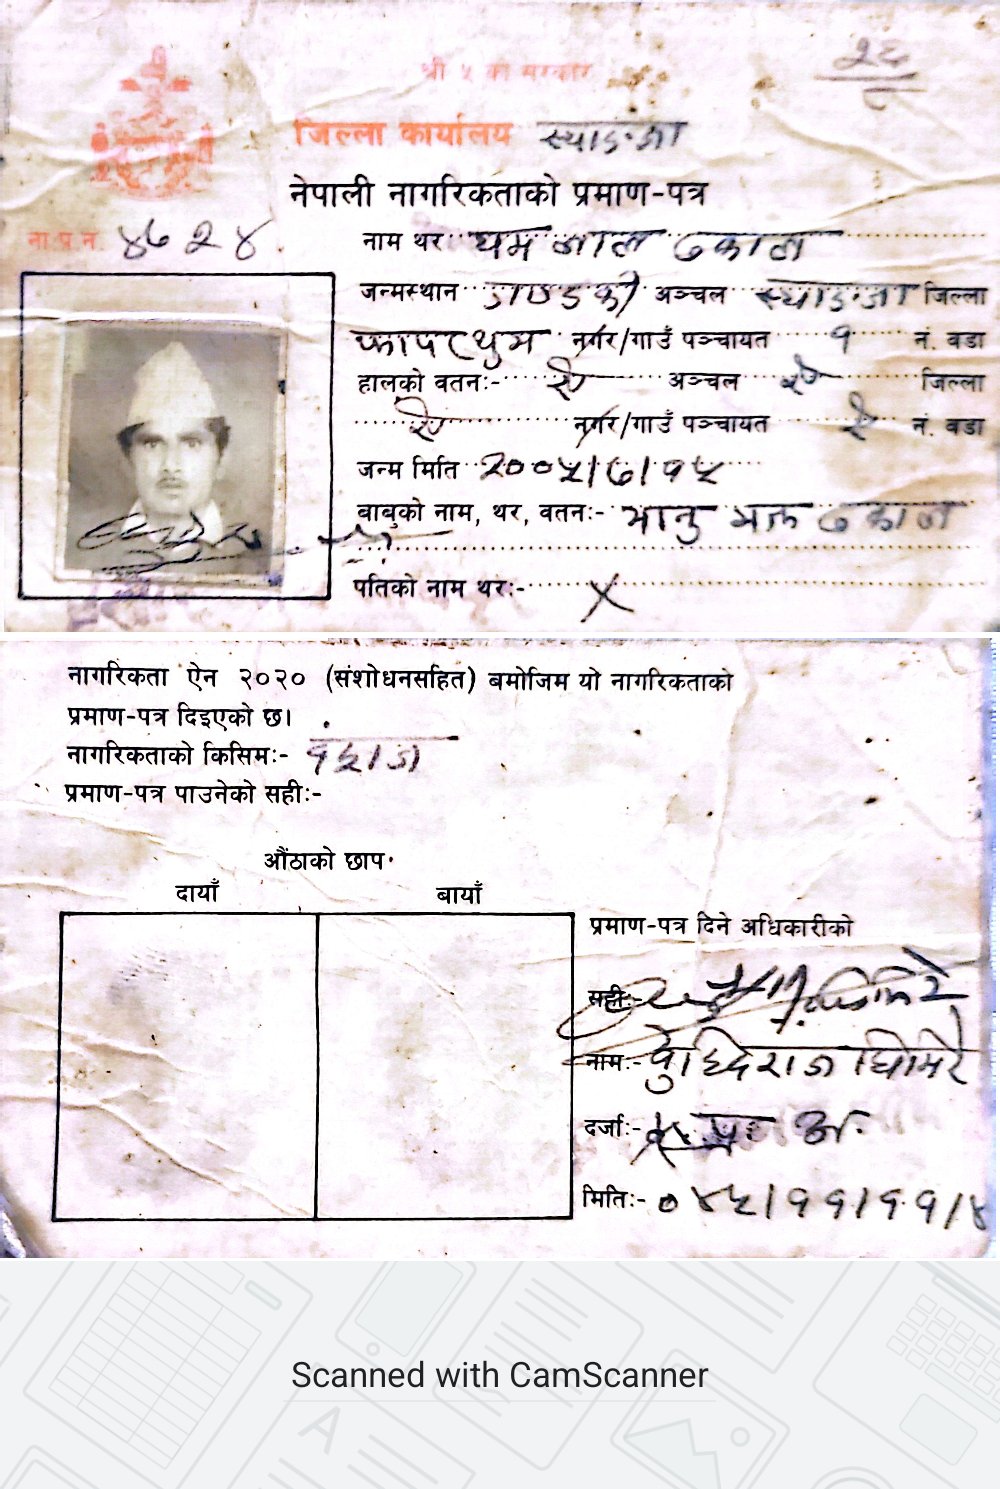 २६
८
श्री ५ को सरकार
जिल्ला कार्यालय स्याङजा
नेपाली नागरिकताको प्रमाण-पत्र
ना.प्र.न. ४७२४.
नाम थर: यम लाल ढकाल
जन्मस्थान गण्डकी अञ्चल स्याङजा जिल्ला
फापरथुम नगर/गाउँ पञ्चायत १ नं. वडा
हालको वतन:- ऐ अञ्चल ऐ जिल्ला
ऐ नगर/गाउँ पञ्चायत ऐ नं. वडा
जन्म मिति २००५/७/१५
बाबुको नाम, थर, वतन:- भानु भक्त ढकाल
पतिको नाम थर:- X
नागरिकता ऐन २०२० (संशोधनसहित) बमोजिम यो नागरिकताको
प्रमाण-पत्र दिइएको छ।
नागरिकताको किसिम:- वंशज
प्रमाण-पत्र पाउनेको सही:-
औंठाको छाप
दायाँ बायाँ
प्रमाण-पत्र दिने अधिकारीको
सही:-
नाम:- बुद्धिराज घिमिरे
दर्जा:- प्र. अ.
मिति:- ०४५/११/११/४
Scanned with CamScanner